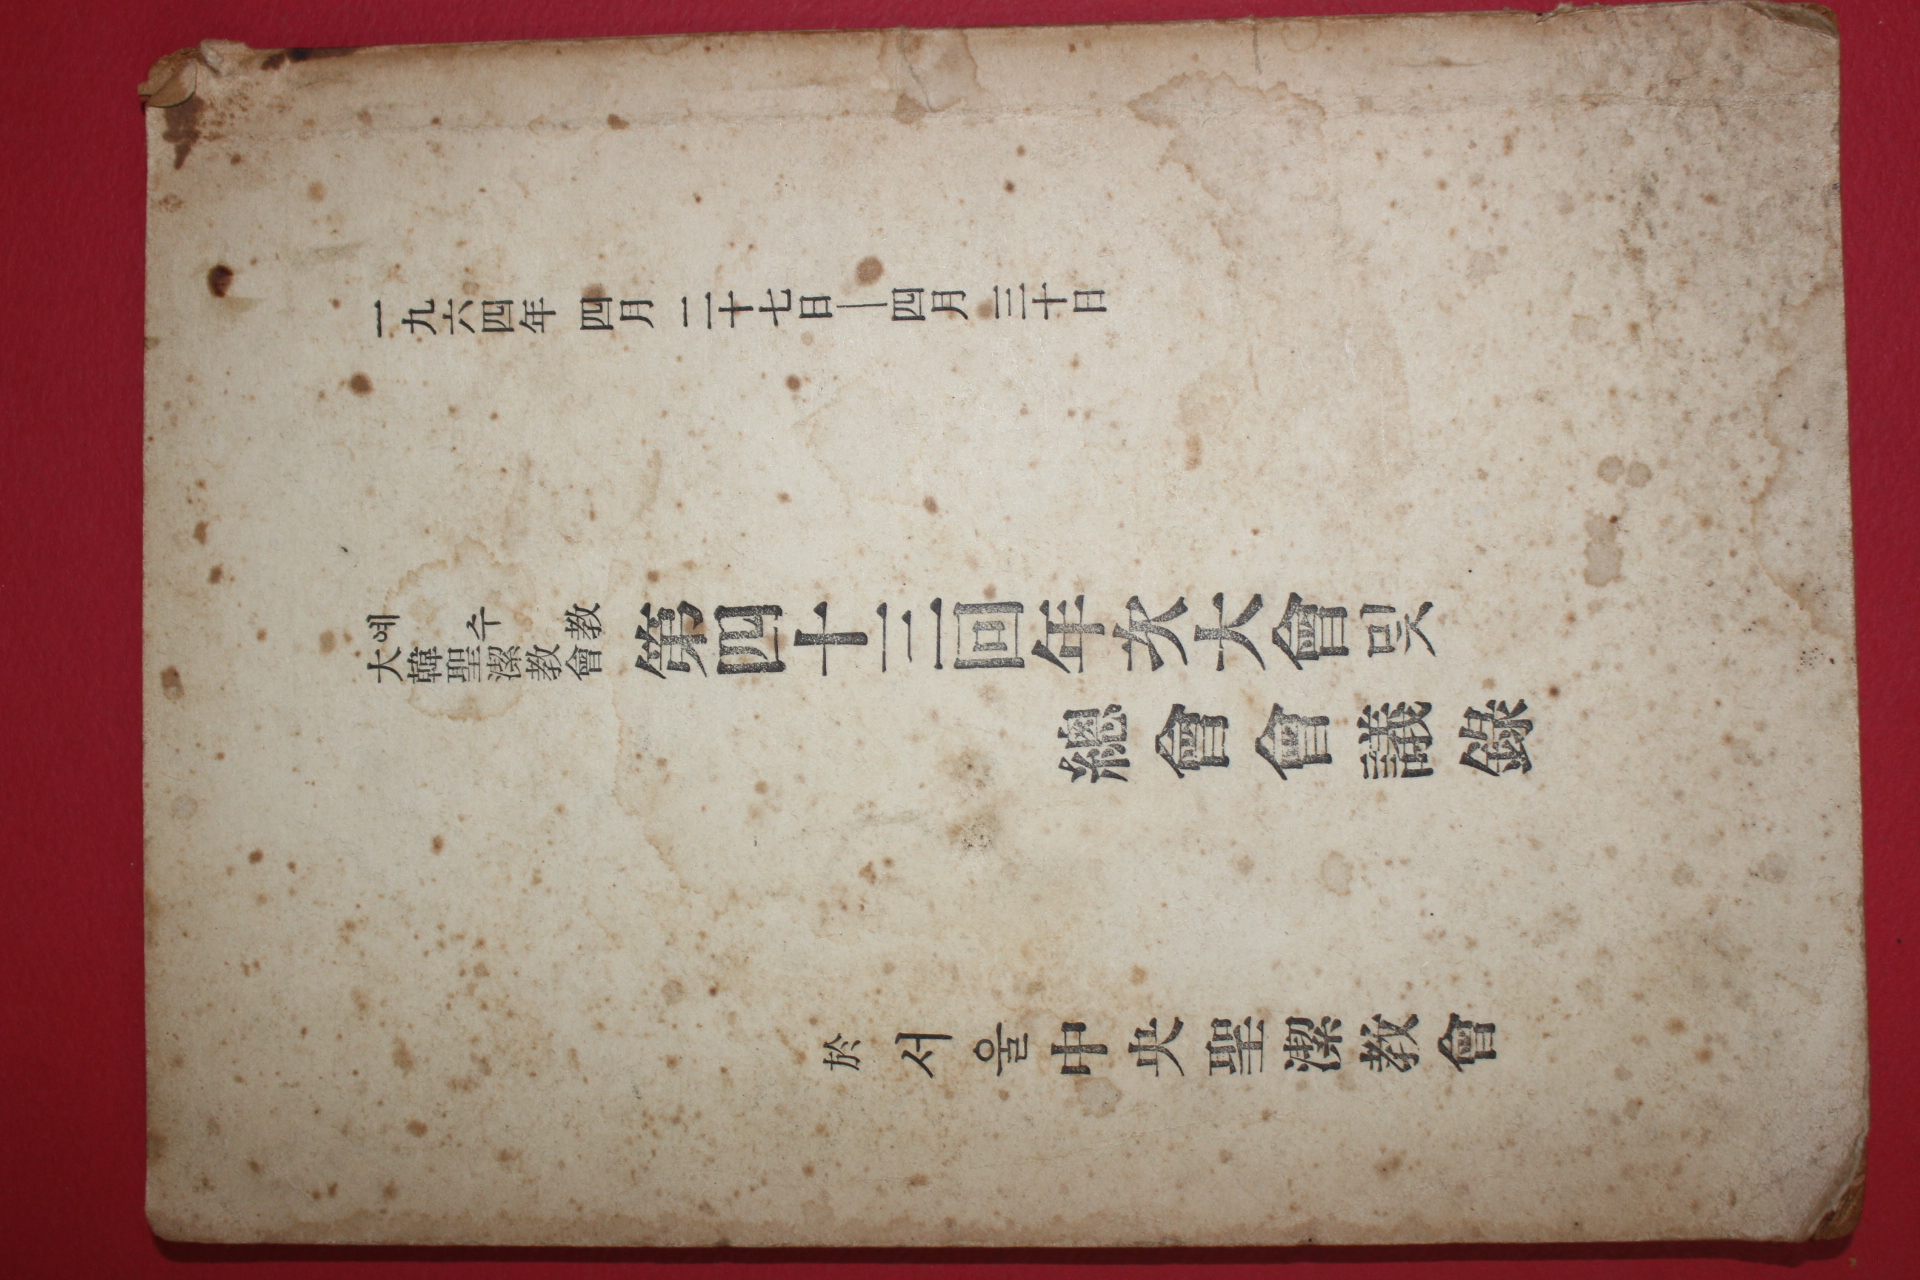 一九六四年 四月 二十七日—四月 三十日
예수教
大韓聖潔教會
第四十三回年次大會및
總會會議錄
於 서울中央聖潔教會